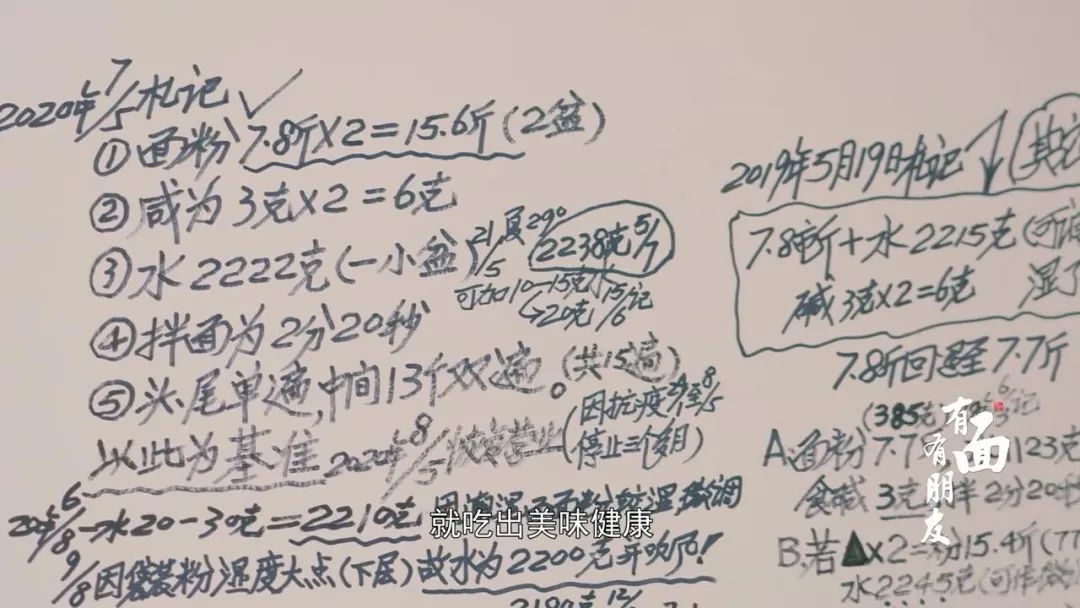 2020年7/5札记 ✓
①面粉7.8斤×2=15.6斤(2盆)
②咸为3克×2=6克
③水2222克(一小盆)
21/5 夏29°
2238克 5/7
可加10-15克水 15/6记
→20克
④拌面为2分20秒
⑤头.尾单遍,中间13个双遍。(共15遍)
以此为基准 2020年8/5恢复营业
(因抗疫24/1至8/5
停止三个多月)
6/8-水20-30克=2210克
9/8因袋装粉湿度大点(下层)故水为2200克
2019年5月19日札记
7.8斤+水2215克
碱3克×2=6克
7.8斤回退至7.7斤
(385克
A.面粉7.7
食碱3克拌2分20
B.若▲×2=粉15.4斤(77
水2245克
有面有朋友
就吃出美味健康